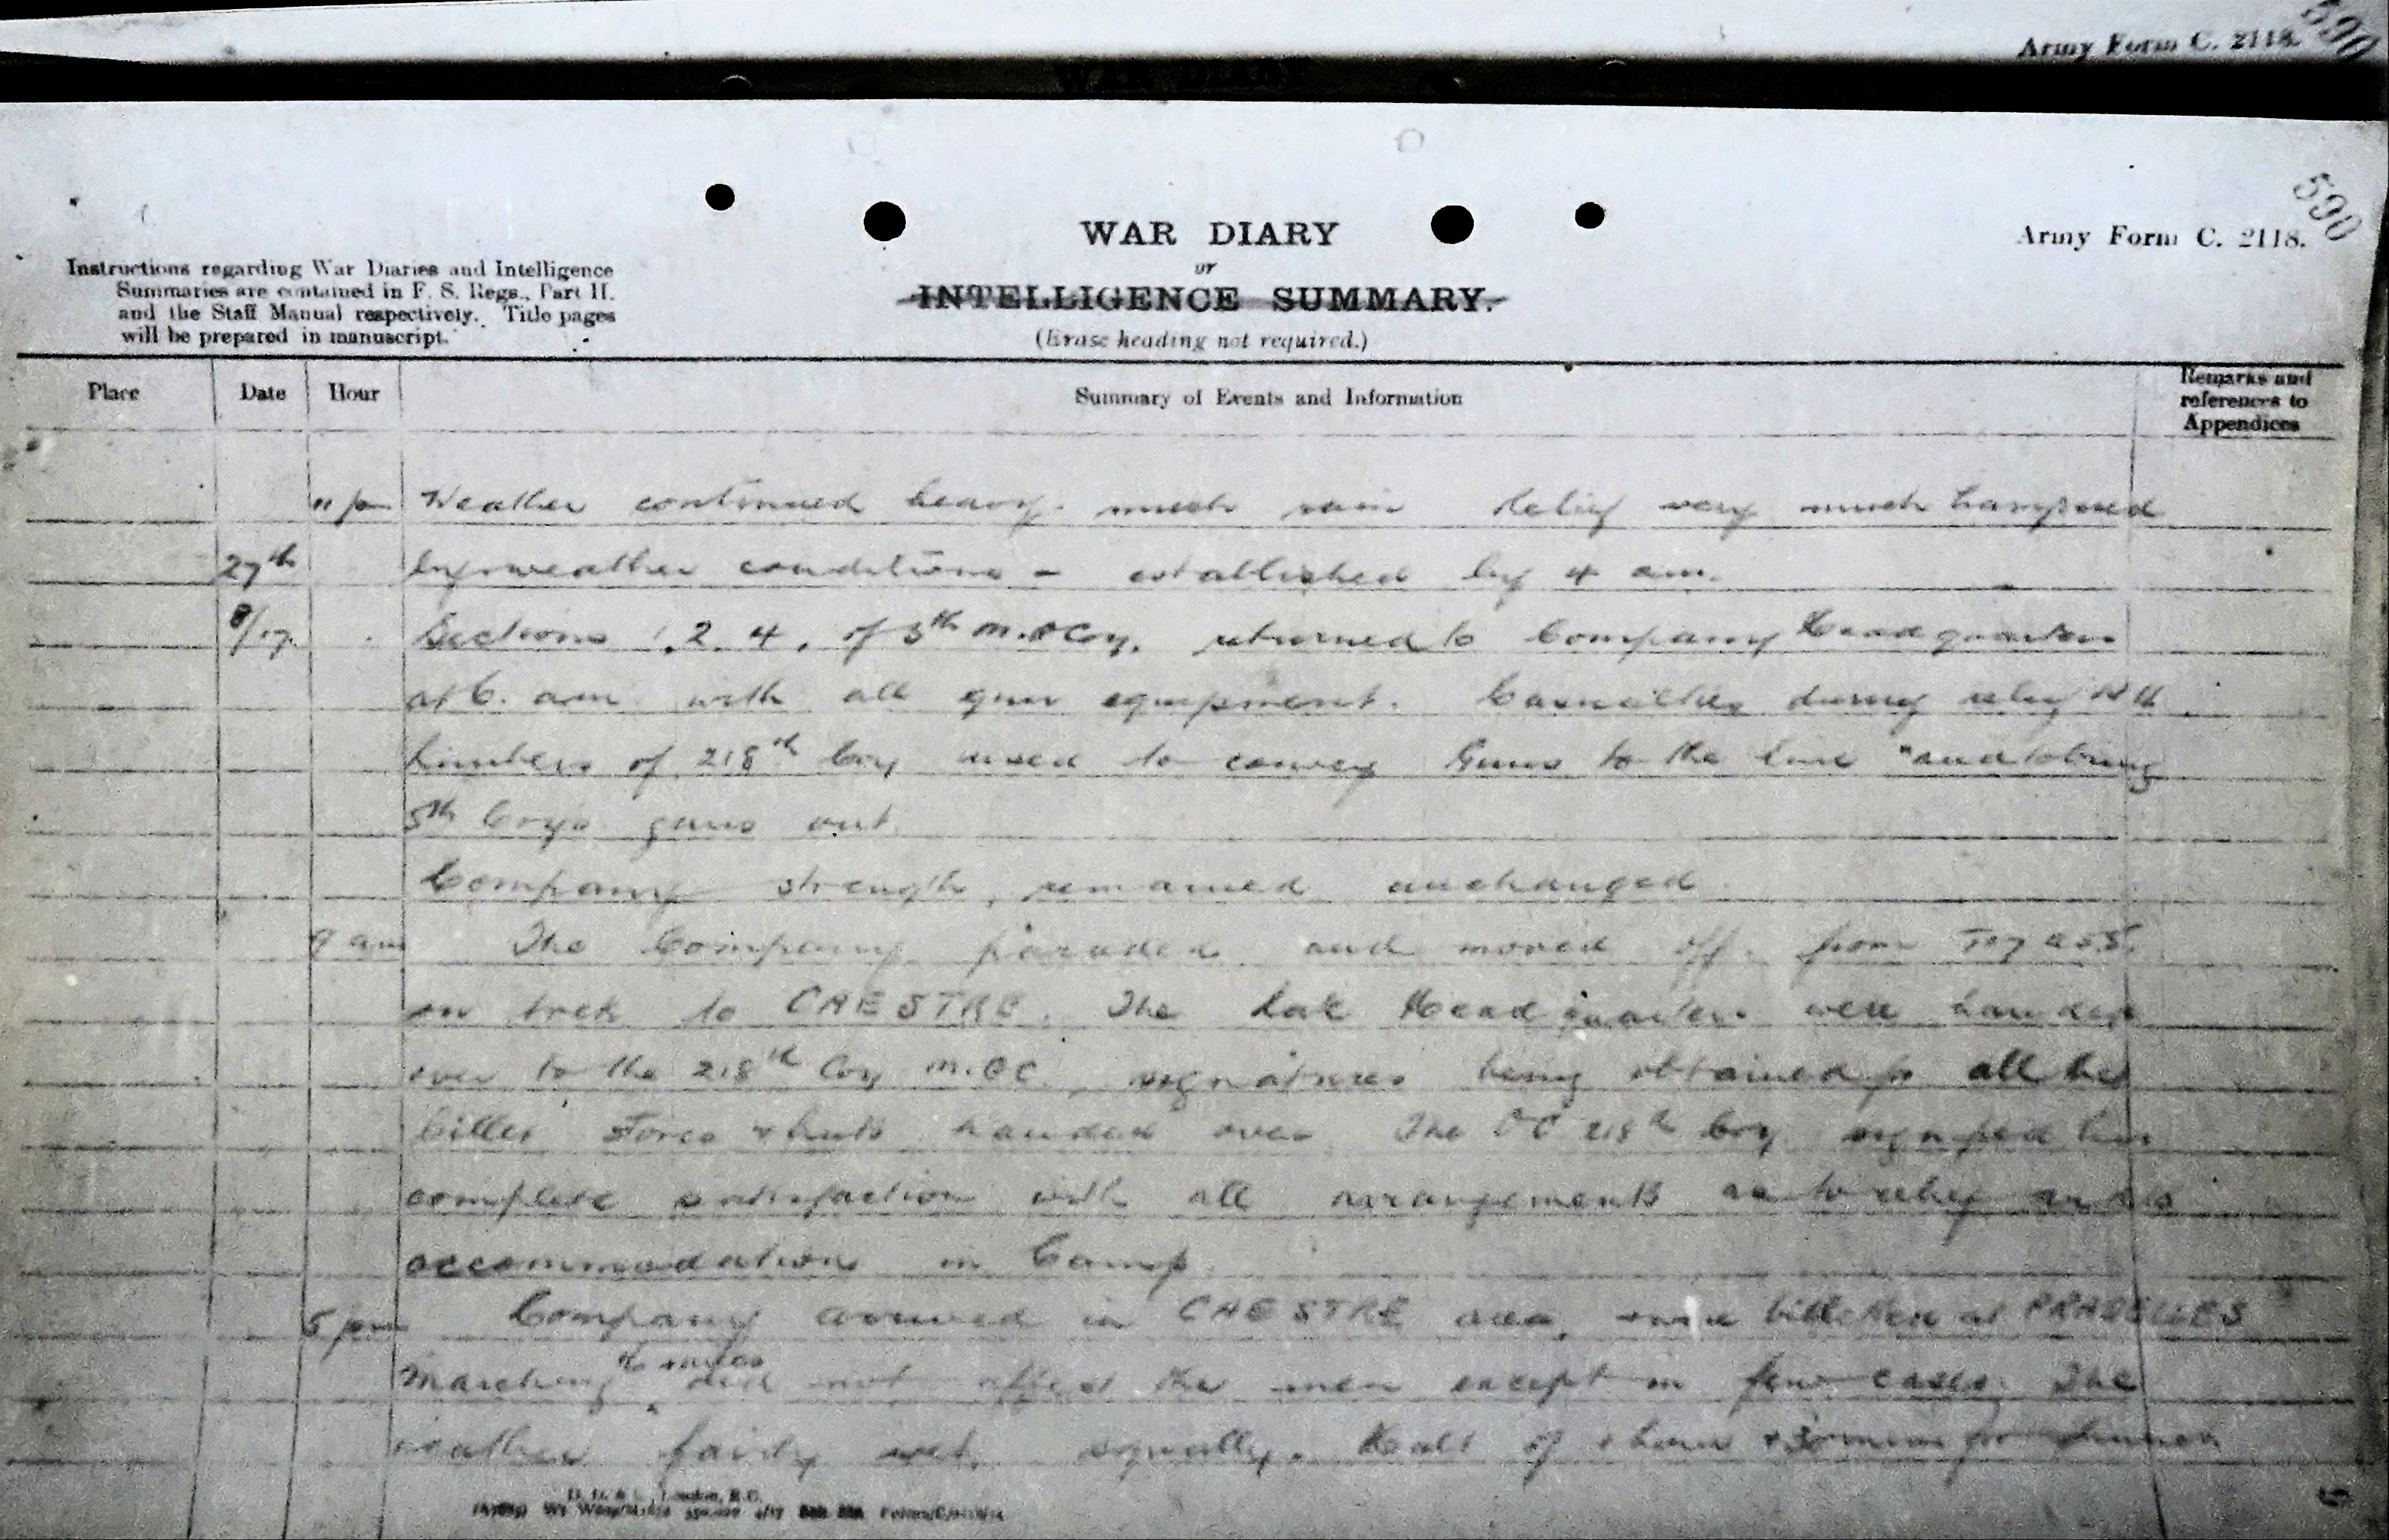 Army Form C. 2118.
590
WAR DIARY
590
WAR DIARY
or
INTELLIGENCE SUMMARY.
(Erase heading not required.)
Army Form C. 2118.
Instructions regarding War Diaries and Intelligence
Summaries are contained in F. S. Regs., Part II.
and the Staff Manual respectively. Title pages
will be prepared in manuscript.
Place Date Hour Summary of Events and Information Remarks and references to Appendices
11 pm Weather continued heavy. much rain Relief very much hampered
27th by weather conditions - established by 4 am.
8/17. Sections 1, 2, 4, of 5th M.G Coy. returned to Company Headquarters
at 6. am. with all gun equipment. Casualties during relief Nil
Limbers of 218th Coy used to convey Guns to the line and to bring
5th Coys guns out.
Company strength, remained unchanged
9 am The Company paraded and moved off from
on trek to CAESTRE. The Headquarters were handed
over to the 218th Coy M.GC, signatures being obtained for all the
billet stores & huts handed over. The OC 218th Coy signified his
complete satisfaction with all arrangements as to relief and
accommodation in Camp.
5 pm Company arrived in CAESTRE area, at PRADELLES
Marching did not affect the men except in few cases. The
weather fairly wet, squally. Halt of 1 hour for dinner
London, E.C.